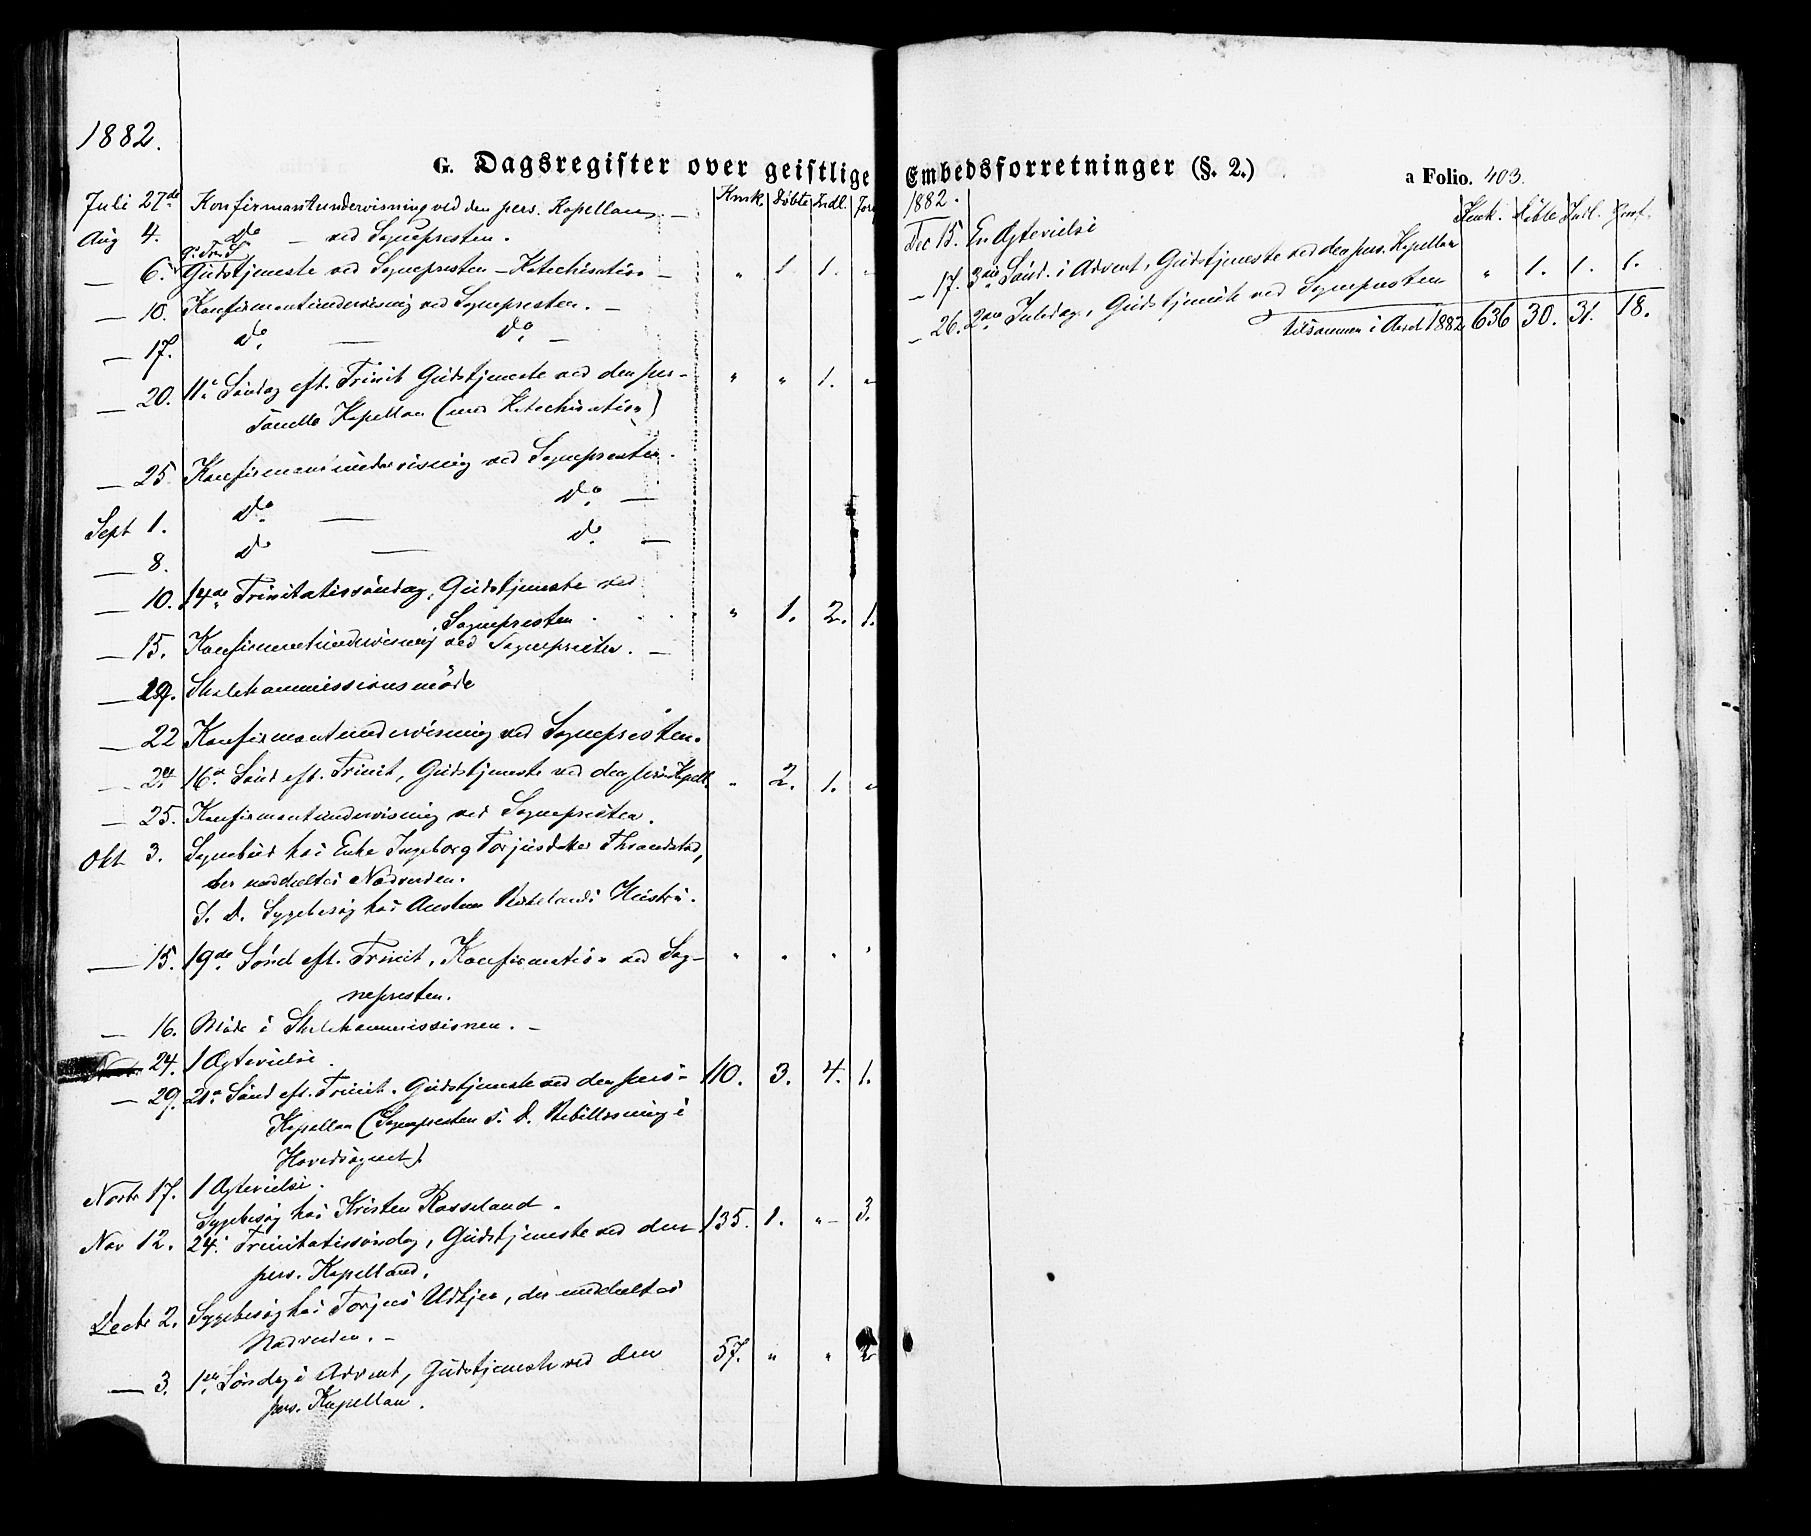 1882.
G. Dagsregister over geistlige
Kmk. Döbte Indl. For
Juli 27de Konfirmantundervisning ved den pers. Kapellan —
Aug 4. do — ved Sognepresten.
9. Tr. S.
— 6. Gudstjeneste ved Sognepresten – Katechisation — „ 1. 1. „
— 10. Konfirmantundervisning ved Sognepresten. —
— 17. do. — do. —
— 20. 11te Söndag eft. Trinit Gudstjeneste ved den per- „ „ 1. „
sonelle Kapellan (med Katechisation)
— 25. Konfirmantundervisning ved Sognepresten.
Sept 1. do. — do. —
— 8. do — do. —
— 10. 14de Trinitatissöndag, Gudstjeneste ved
Sognepresten . . . „ 1. 2. 1.
— 15. Konfirmantundervisning ved Sognepresten. —
— 19. Skolekommissionsmöde
— 22 Konfirmantundervisning ved Sognepresten.
— 24 16de Sönd eft. Trinit, Gudstjeneste ved den pers Kapell. „ 2. 1. „
— 25. Konfirmantundervisning ved Sognepresten.
Okt 3. Sognebud hos Enke Ingeborg Torjusdatter Thrandstad,
der meddeltes Nadverden.
S. D. Sygebesög hos Austen Hustru.
— 15. 19de Sönd eft. Trinit, Konfirmation ved Sog- „ „ „ „
nepresten.
— 16. Möde i Skolekommissionen. —
24. 1 Ægtevielse.
— 29. 21de Sönd eft. Trinit. Gudstjeneste ved den pers. 110. 3. 4. 1.
Kapellan (Sognepresten s. D. Bibellæsning i
Hovedsognet).
Novbr 17. 1 Ægtevielse.
Sygebesög hos Kristen Rosseland.
Nov 12. 24. Trinitatissöndag, Gudstjeneste ved den 135. 1. „ – 3.
pers. Kapelland.
Decbr 2. Sygebesög hos Torjus Udtjen, der meddeltes
Nadverden. —
— 3. 1ste Söndag i Advent, Gudstjeneste ved den 57. „ „ 2
pers. Kapellan.
Embedsforretninger (§. 2.)
a Folio. 403.
1882. Kmk. Döbte Indl. Konf.
Dec 15. En Ægtevielse
— 17. 3die Sönd. i Advent, Gudstjeneste ved den pers. Kapellan
— 26. 2den Juledag, Gudstjeneste ved Sognepresten „ 1. 1. 1.
tilsammen i Aaret 1882 636 30. 31. 18.